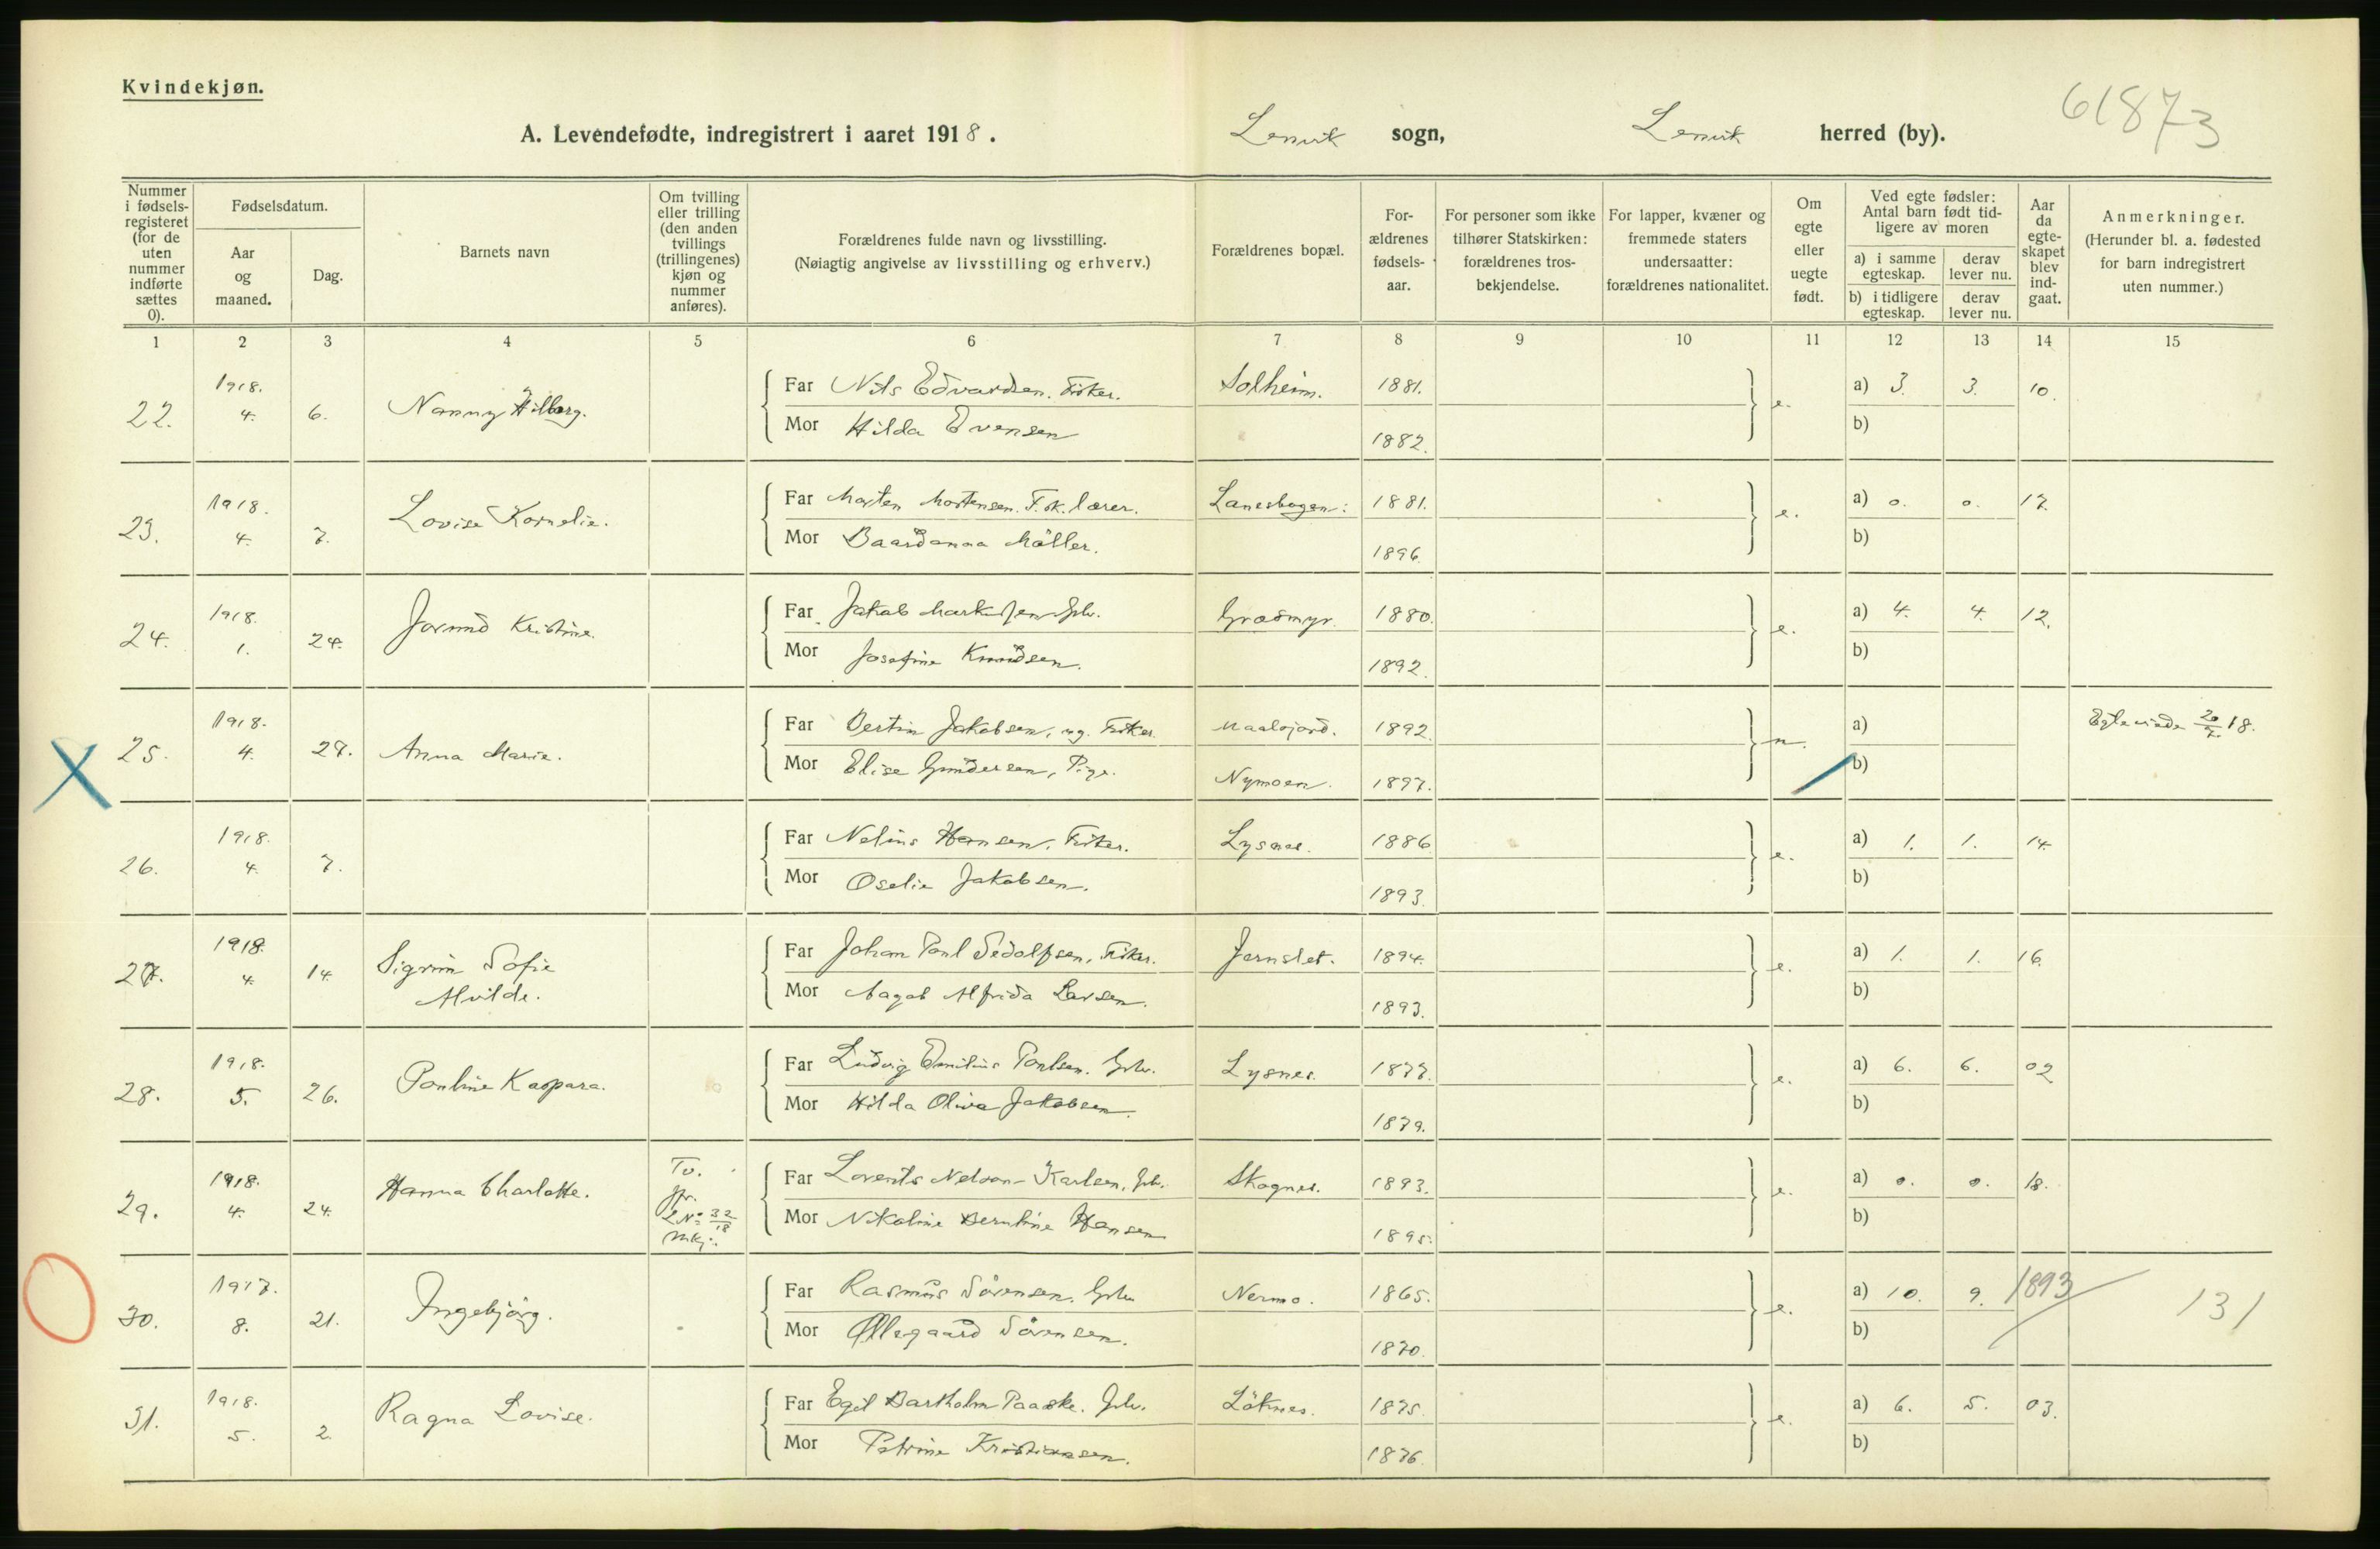 Kvindekjøn.
61873
A. Levendefødte, indregistrert i aaret 1918. Lenvik sogn, Lenvik herred (by).
Nummer i fødselsregisteret (for de uten nummer indførte sættes 0).
Fødselsdatum.
Aar og maaned.
Dag.
Barnets navn
Om tvilling eller trilling (den anden tvillings (trillingenes) kjøn og nummer anføres).
Forældrenes fulde navn og livsstilling.
(Nøiagtig angivelse av livsstilling og erhverv.)
Forældrenes bopæl.
Forældrenes fødselsaar.
For personer som ikke tilhører Statskirken: forældrenes trosbekjendelse.
For lapper, kvæner og fremmede staters undersaatter: forældrenes nationalitet.
Om egte eller uegte født.
Ved egte fødsler: Antal barn født tidligere av moren
a) i samme egteskap.
derav lever nu.
b) i tidligere egteskap.
derav lever nu.
Aar da egteskapet blev indgaat.
Anmerkninger.
(Herunder bl. a. fødested for barn indregistrert uten nummer.)
1 2 3 4 5 6 7 8 9 10 11 12 13 14 15
22. 1918. 4. 6. Nanny Hilborg. Far Nils Edvardsen. Fisker. Solheim. 1881. e. a) 3. 3. 10.
Mor Hilda Evensen 1882. b)
23. 1918. 4. 7. Lovise Kornelie. Far Morten Mortensen. F.sk.lærer. Lanesbogen: 1881. e. a) 0. 0. 17.
Mor Baardanna Möller. 1896. b)
24. 1918. 1. 24. Jorund Kristine. Far Jakob Markussen Gbr. Grasmyr. 1880. e. a) 4. 4. 12.
Mor Josefine Knudsen. 1892. b)
25. 1918. 4. 27. Anna Marie. Far Bertin Jakobsen, ug. Fisker. Maalsjord. 1892. u. a) Egteviede 20/7 18.
Mor Elise Gundersen, Pige. Nymoen. 1897. b)
26. 1918. 4. 7. Far Nelius Hansen. Fisker. Lysnes. 1886 e. a) 1. 1. 14.
Mor Oselie Jakobsen. 1893. b)
27. 1918. 4. 14. Sigrun Sofie
Alvilde. Far Johan Paul Sedolfsen, Fisker. Jernslet. 1894. e. a) 1. 1. 16.
Mor Aagot Alfrida Larsen. 1893. b)
28. 1918. 5. 26. Pauline Kaspara. Far Ludvig Emilius Paulsen. Gbr. Lysnes. 1877. e. a) 6. 6. 02
Mor Hilda Oliva Jakobsen. 1879. b)
29. 1918. 4. 24. Hanna Charlotte. Tv. jfr. L No 32/18 Mkj. Far Lorents Nelson Karlsen, Gbr. Skognes. 1893. e. a) 0. 0. 18.
Mor Nikoline Bernline Hansen 1895. b)
30. 1917. 8. 21. Ingebjörg. Far Rasmus Sörensen. Gbr. Nermo. 1865. e. a) 10. 9. 1893 131
Mor Øllegaard Sörensen. 1870. b)
31. 1918. 5. 2. Ragna Lovise. Far Egil Bartholm Paaske. Gbr. Löknes. 1875. e. a) 6. 5. 03.
Mor Petrine Kristiansen. 1876. b)